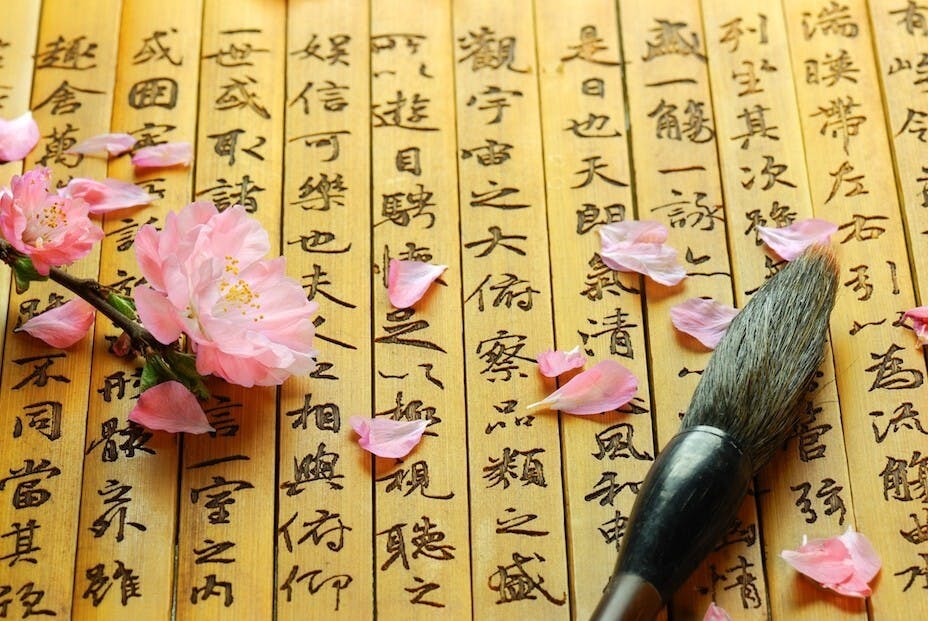 有
湍暎帶左右引以為流觴曲
列坐其次管弦
盛一觴一詠亦情
是日也天朗氣清風和
觀宇宙之大俯察品類之盛
所以遊目騁懷足以極視聽之
娛信可樂也夫人之相與俯仰
一世或取諸言一室之內
或因寄形骸之外雖
趣舍萬不同當其欣